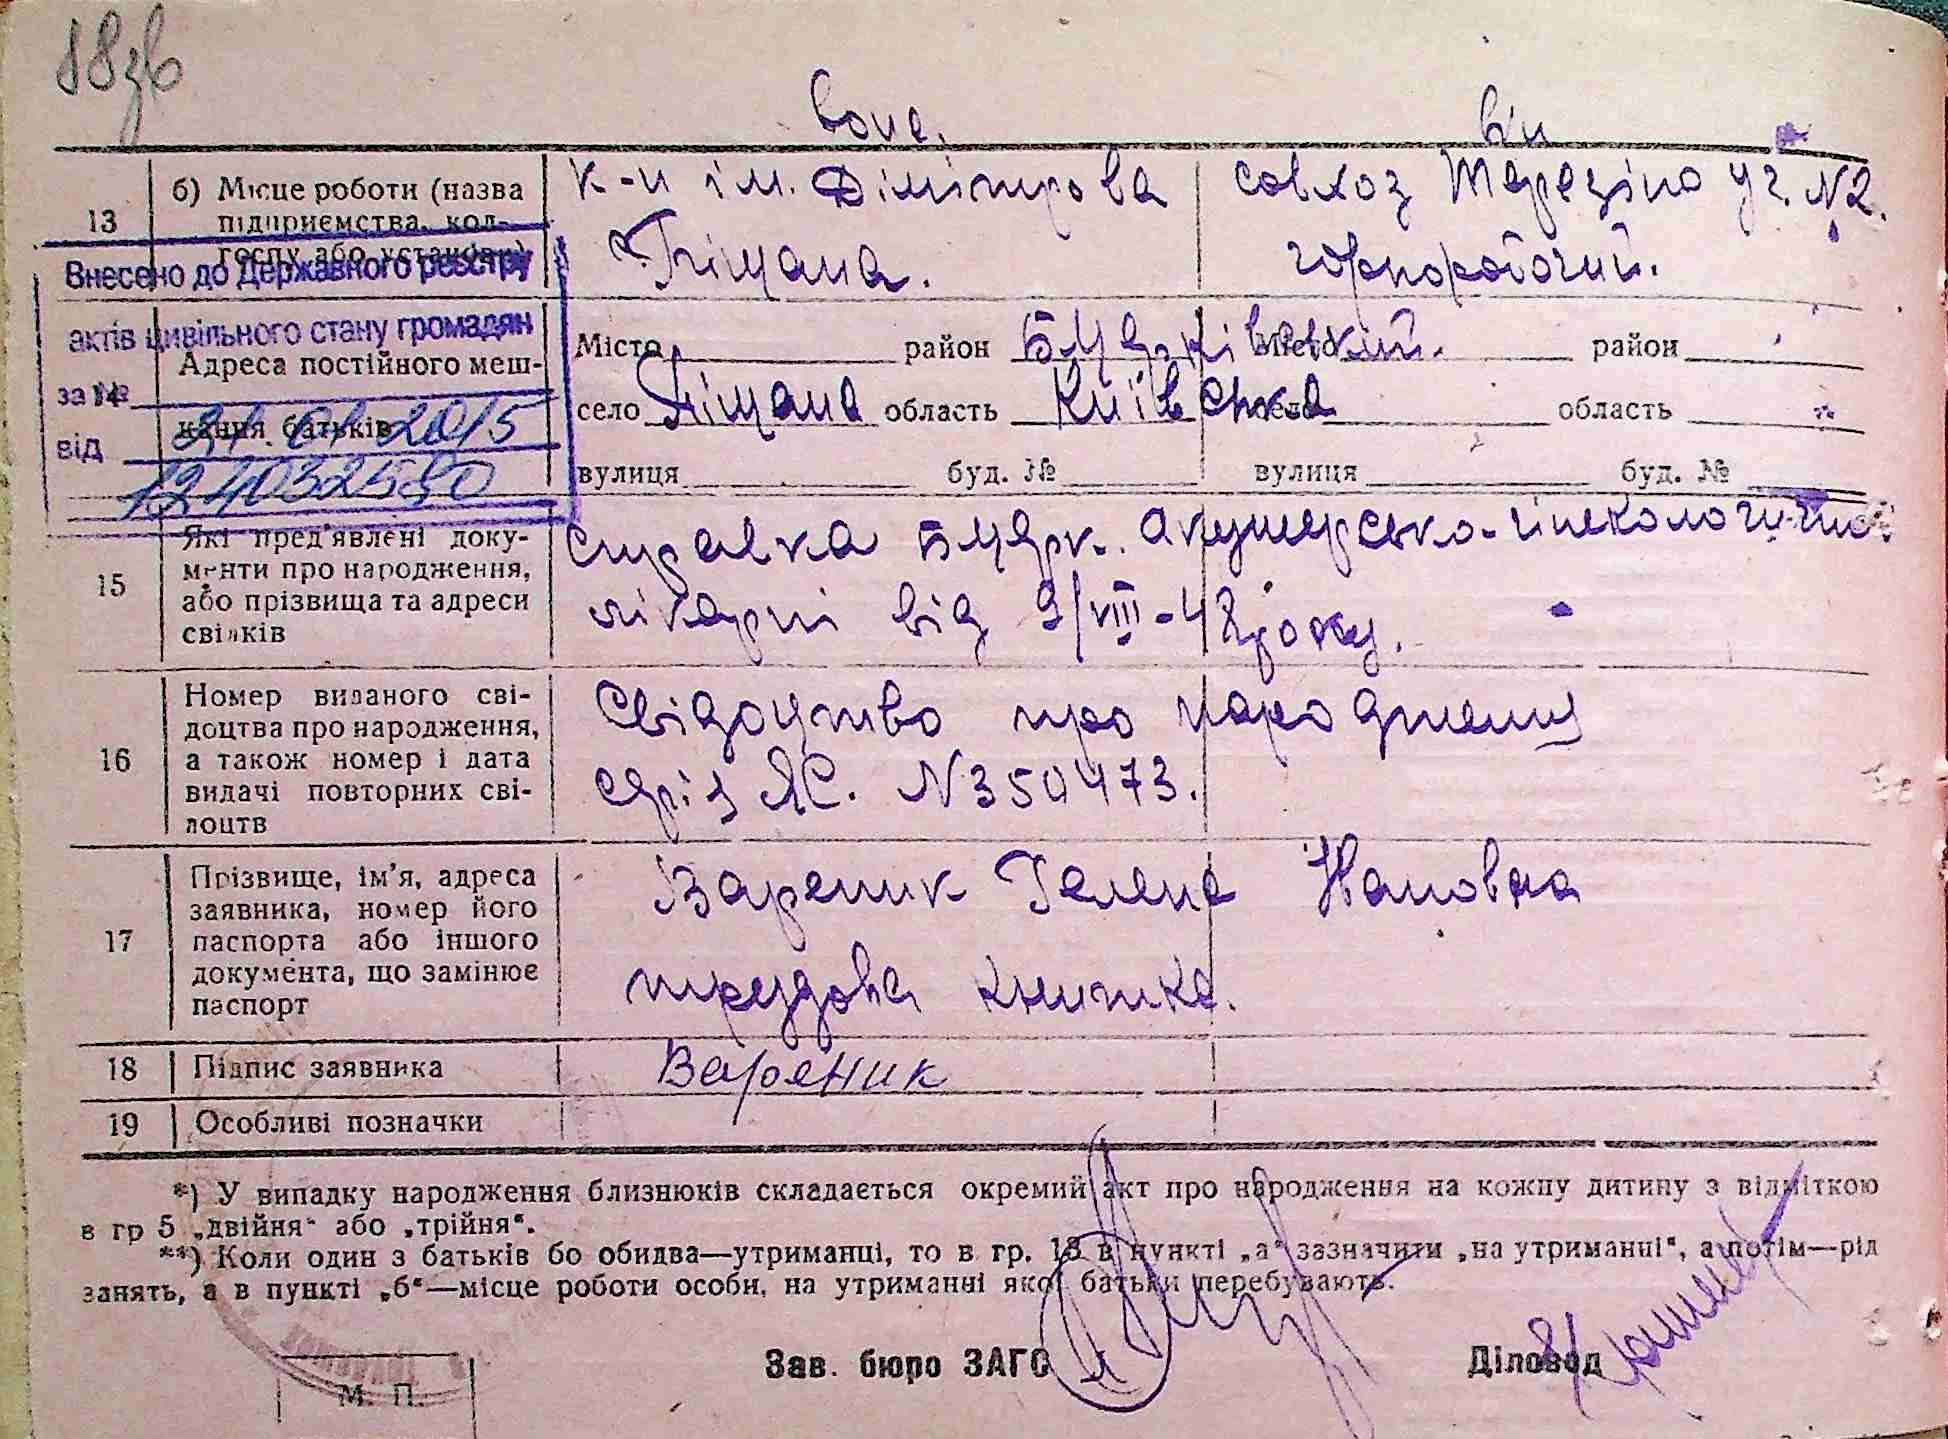 18зв
вона. він
13 б) Місце роботи (назва підприємства, колгоспу або установи)
к-п ім. Дімітрова
с. Піщана.
совхоз Терезіно уч. №2.
чорноробочий.
Внесено до Державного реєстру
актів цивільного стану громадян
за №
від 21.01.2015
1240325
14 Адреса постійного мешкання батьків
Місто район Б Церківський. Місто район
село Піщана область Київська село область
вулиця буд. № вулиця буд. №
15 Які пред'явлені документи про народження, або прізвища та адреси свідків
справка БЦерк. акушерсько-гінекологичної
лікарні від 9/VIII-48 року.
16 Номер виданого свідоцтва про народження, а також номер і дата видачі повторних свідоцтв
Свідоцтво про народження
серія ЯС. N350473.
17 Прізвище, ім'я, адреса заявника, номер його паспорта або іншого документа, що замінює паспорт
Вареник Галена
трудова книжка.
18 Підпис заявника Вареник
19 Особливі позначки
*) У випадку народження близнюків складається окремий акт про народження на кожну дитину з відміткою
в гр 5 „двійня“ або „трійня“.
**) Коли один з батьків бо обидва—утриманці, то в гр. 13 в пункті „а“ зазначити „на утриманні“, а потім—рід
занять, а в пункті „б“—місце роботи особи, на утриманні якої батьки перебувають.
Зав. бюро ЗАГС Діловод
М. П.